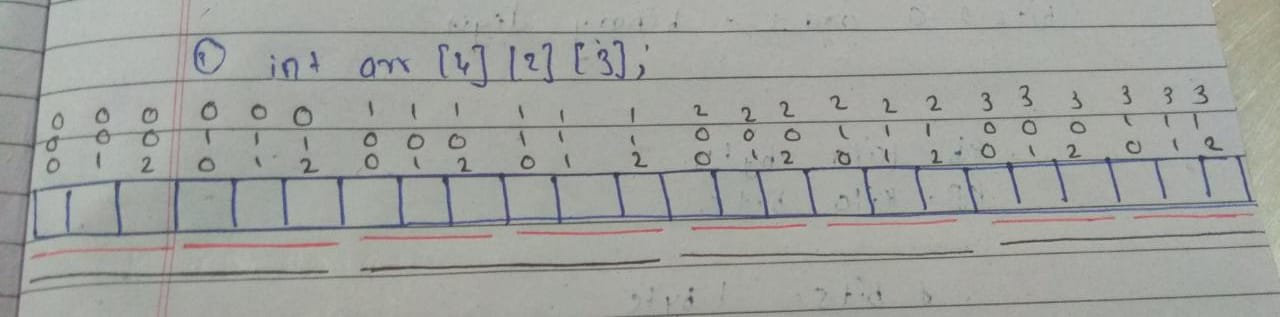 ② int arr [4] [2] [3];
0 0 0 0 0 0 1 1 1 1 1 1 2 2 2 2 2 2 3 3 3 3 3 3
0 0 0 1 1 1 0 0 0 1 1 1 0 0 0 1 1 1 0 0 0 1 1 1
0 1 2 0 1 2 0 1 2 0 1 2 0 1 2 0 1 2 0 1 2 0 1 2